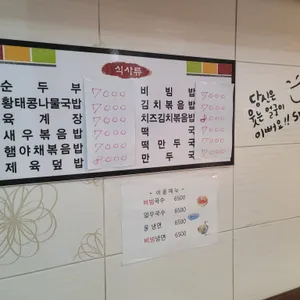 식사류
순두부 7000
황태콩나물국밥 7000
육계장 7000
새우볶음밥
햄야채볶음밥
제육덮밥
비빔밥 7000
김치볶음밥 7000
치즈김치볶음밥
떡국
떡만두국
만두국
여름메뉴
비빔국수 6500
열무국수 6500
물냉면 6500
비빔냉면 6500
당신은
웃는 얼굴이
이뻐요!!